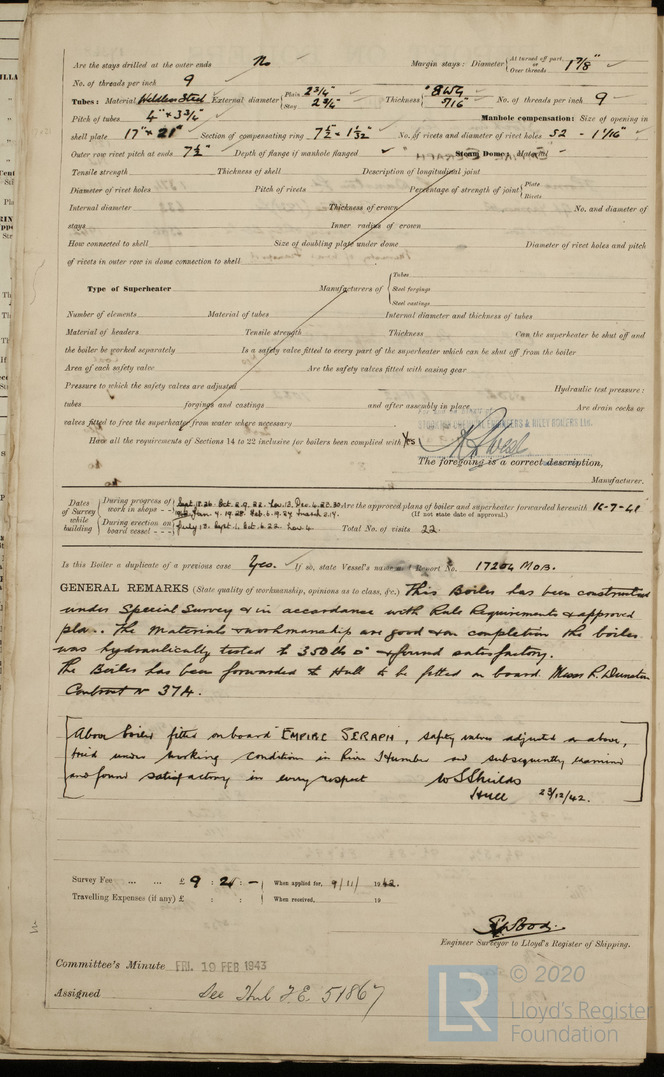 Are the stays drilled at the outer ends No Margin stays: Diameter { At turned off part, or Over threads 1 7/8" 
No. of threads per inch 9
Tubes: Material External diameter { Plain 2 3/4" Stay 2 3/4" Thickness { 8 WG 5/16" No. of threads per inch 9
Pitch of tubes 4" × 3 3/4" Manhole compensation: Size of opening in
shell plate 17" × 21" Section of compensating ring 7 1/2 × 1 1/32" No. of rivets and diameter of rivet holes 52 - 1 1/16"
Outer row rivet pitch at ends 7 1/2" Depth of flange if manhole flanged Steam Dome: Material -
Tensile strength Thickness of shell Description of longitudinal joint
Diameter of rivet holes Pitch of rivets Percentage of strength of joint { Plate Rivets
Internal diameter Thickness of crown No. and diameter of
stays Inner radius of crown
How connected to shell Size of doubling plate under dome Diameter of rivet holes and pitch
of rivets in outer row in dome connection to shell
Type of Superheater Manufacturers of { Tubes Steel forgings Steel castings
Number of elements Material of tubes Internal diameter and thickness of tubes
Material of headers Tensile strength Thickness Can the superheater be shut off and
the boiler be worked separately Is a safety valve fitted to every part of the superheater which can be shut off from the boiler
Area of each safety valve Are the safety valves fitted with easing gear
Pressure to which the safety valves are adjusted Hydraulic test pressure:
tubes forgings and castings and after assembly in place Are drain cocks or
valves fitted to free the superheater from water where necessary
Have all the requirements of Sections 14 to 22 inclusive for boilers been complied with Yes
The foregoing is a correct description,
Manufacturer.
Dates of Survey while building { During progress of work in shops - - Are the approved plans of boiler and superheater forwarded herewith 16-7-41
(If not state date of approval.)
During erection on board vessel - - - Total No. of visits 22
Is this Boiler a duplicate of a previous case Yes. If so, state Vessel's name and Report No. 17204 MOB.
GENERAL REMARKS (State quality of workmanship, opinions as to class, &c.) This Boiler has been constructed
under Special Survey & in accordance with Rule Requirements & approved
The Materials & workmanship are good & on completion the boiler
was hydraulically tested to 350 lbs □" & found satisfactory.
The Boiler has been forwarded to Hull to be fitted on board Messrs R. Dunston
Contract No 374.
Above boiler fitted on board "EMPIRE SERAPH", safety valves adjusted as above,
tried under working condition in River Humber and subsequently examined
and found satisfactory in every respect W S Shields
Hull 23/12/42.
Survey Fee ... ... £ 9 : 2 : - When applied for, 9/11/ 1942.
Travelling Expenses (if any) £ : : When received, 19
Engineer Surveyor to Lloyd's Register of Shipping.
Committee's Minute FRI. 19 FEB 1943
Assigned See Hul F.E. 51867
LR © 2020
Lloyd's Register
Foundation